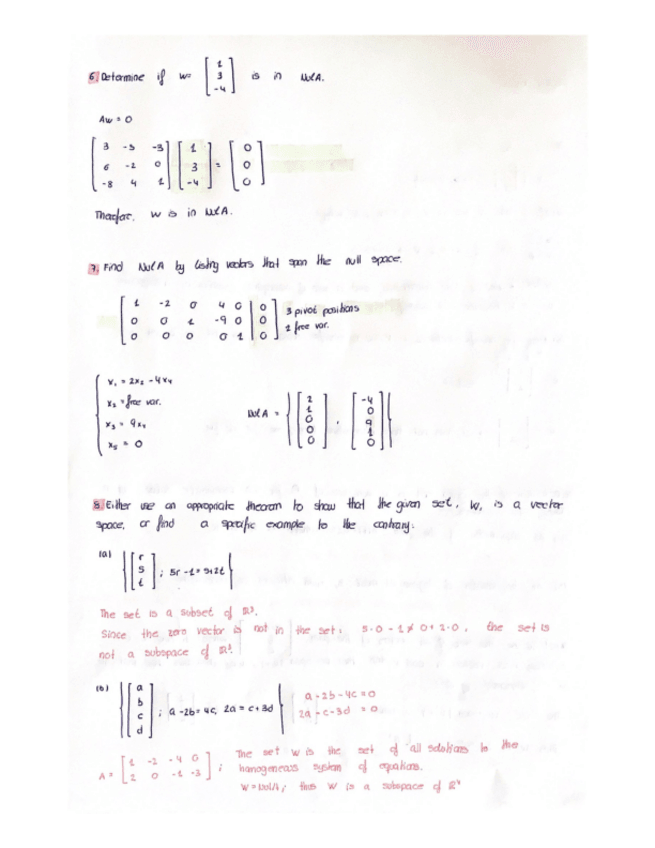 6. Determine if w= [ 1 3 -4 ] is in NulA.
Aw = 0
[ 3 -5 -3 ] [ 1 ] = [ 0 ]
[ 6 -2 0 ] [ 3 ] [ 0 ]
[ -8 4 1 ] [ -4 ] [ 0 ]
w is in NulA.
7. Find NulA by listing vectors that span the null space.
[ 1 -2 0 4 0 | 0 ] 3 pivot positions
[ 0 0 1 -9 0 | 0 ] 2 free var.
[ 0 0 0 0 1 | 0 ]
x₁ = 2x₂ - 4x₄
x₂ = free var.
x₃ = 9x₄
x₅ = 0
NulA = { [ 2 1 0 0 0 ] , [ -4 0 9 1 0 ] }
8. Either use an appropriate theorem to show that the given set, W, is a vector
space, or find a specific example to the contrary.
(a) { [ r s t ] ; 5r -1 = s+2t }
The set is a subset of ℝ³.
Since the zero vector is not in the set. 5.0 - 1 ≠ 0 + 2.0 , the set is
not a subspace of ℝ³.
(b) { [ a b c d ] ; a -2b = 4c, 2a = c+3d }
a - 2b - 4c = 0
2a - c - 3d = 0
A = [ 1 -2 -4 0 ] ; The set W is the set of all solutions to the
[ 2 0 -1 -3 ] homogeneous system of equations.
W = NulA ; thus W is a subspace of ℝ⁴